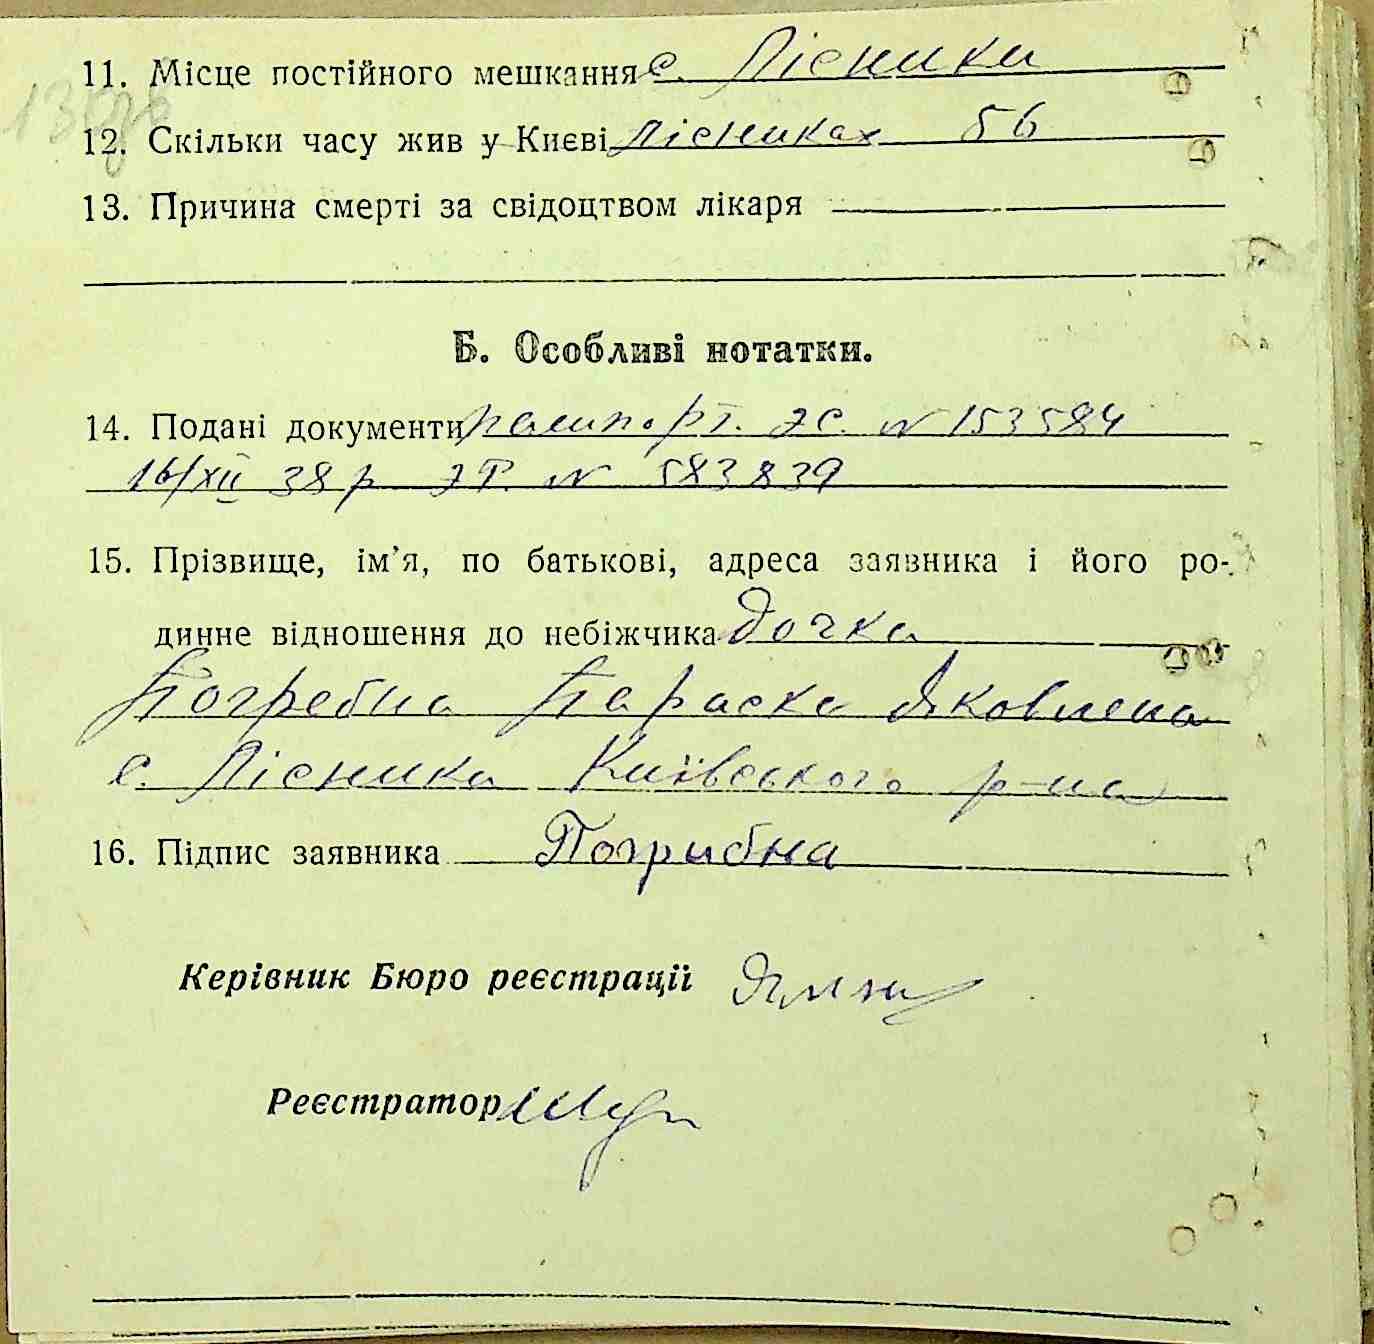 11. Місце постійного мешкання с. Лісники
12. Скільки часу жив у Києві Лісниках 56
13. Причина смерті за свідоцтвом лікаря
Б. Особливі нотатки.
14. Подані документи № 153584
16/XII 38 р № 583839
15. Прізвище, ім’я, по батькові, адреса заявника і його ро-
динне відношення до небіжчика дочка
Погребна Параска Яковлена
с. Лісника Київського р-на
16. Підпис заявника Погрибна
Керівник Бюро реєстрації
Реєстратор